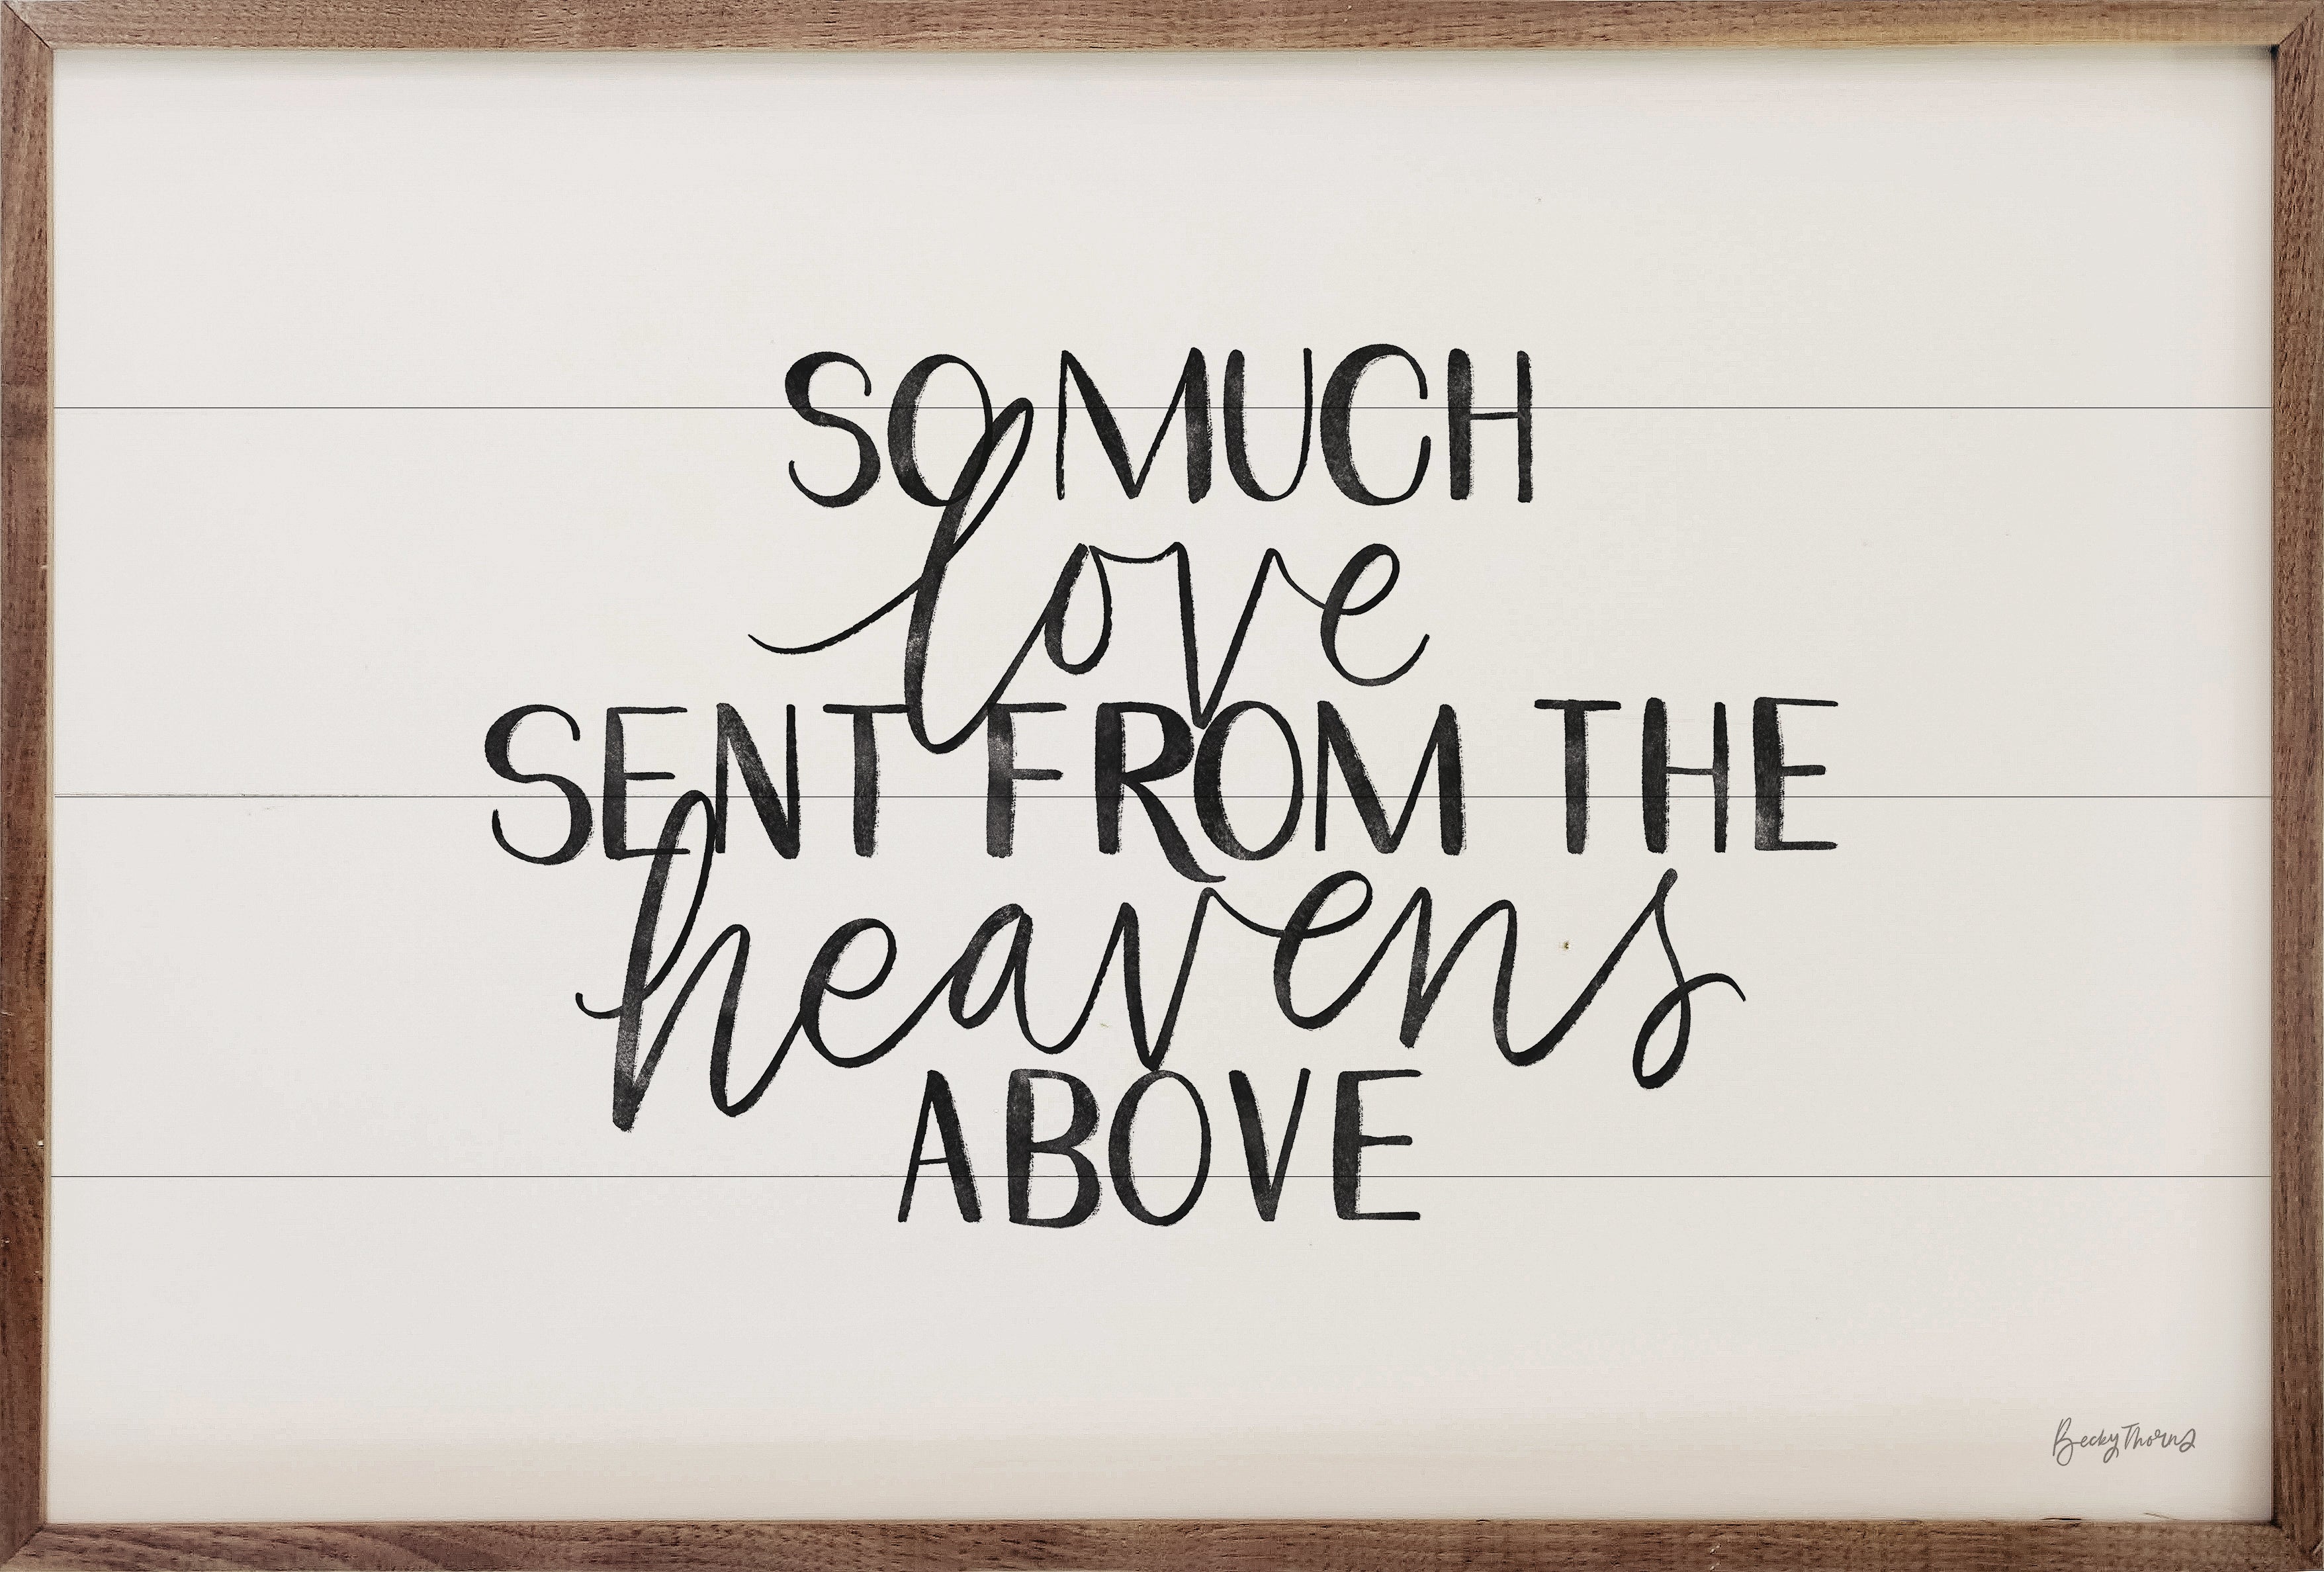 SO MUCH
love
SENT FROM THE
heavens
ABOVE
Becky Thorns